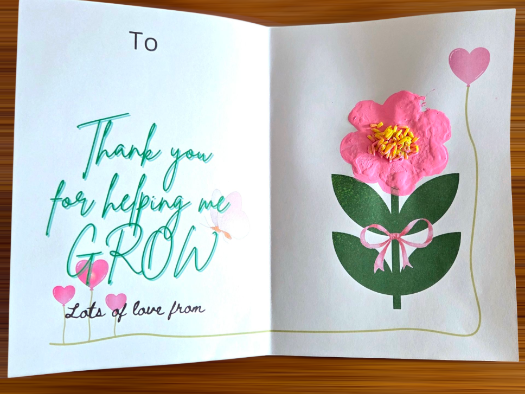 To
Thank you
for helping me
GROW
Lots of love from